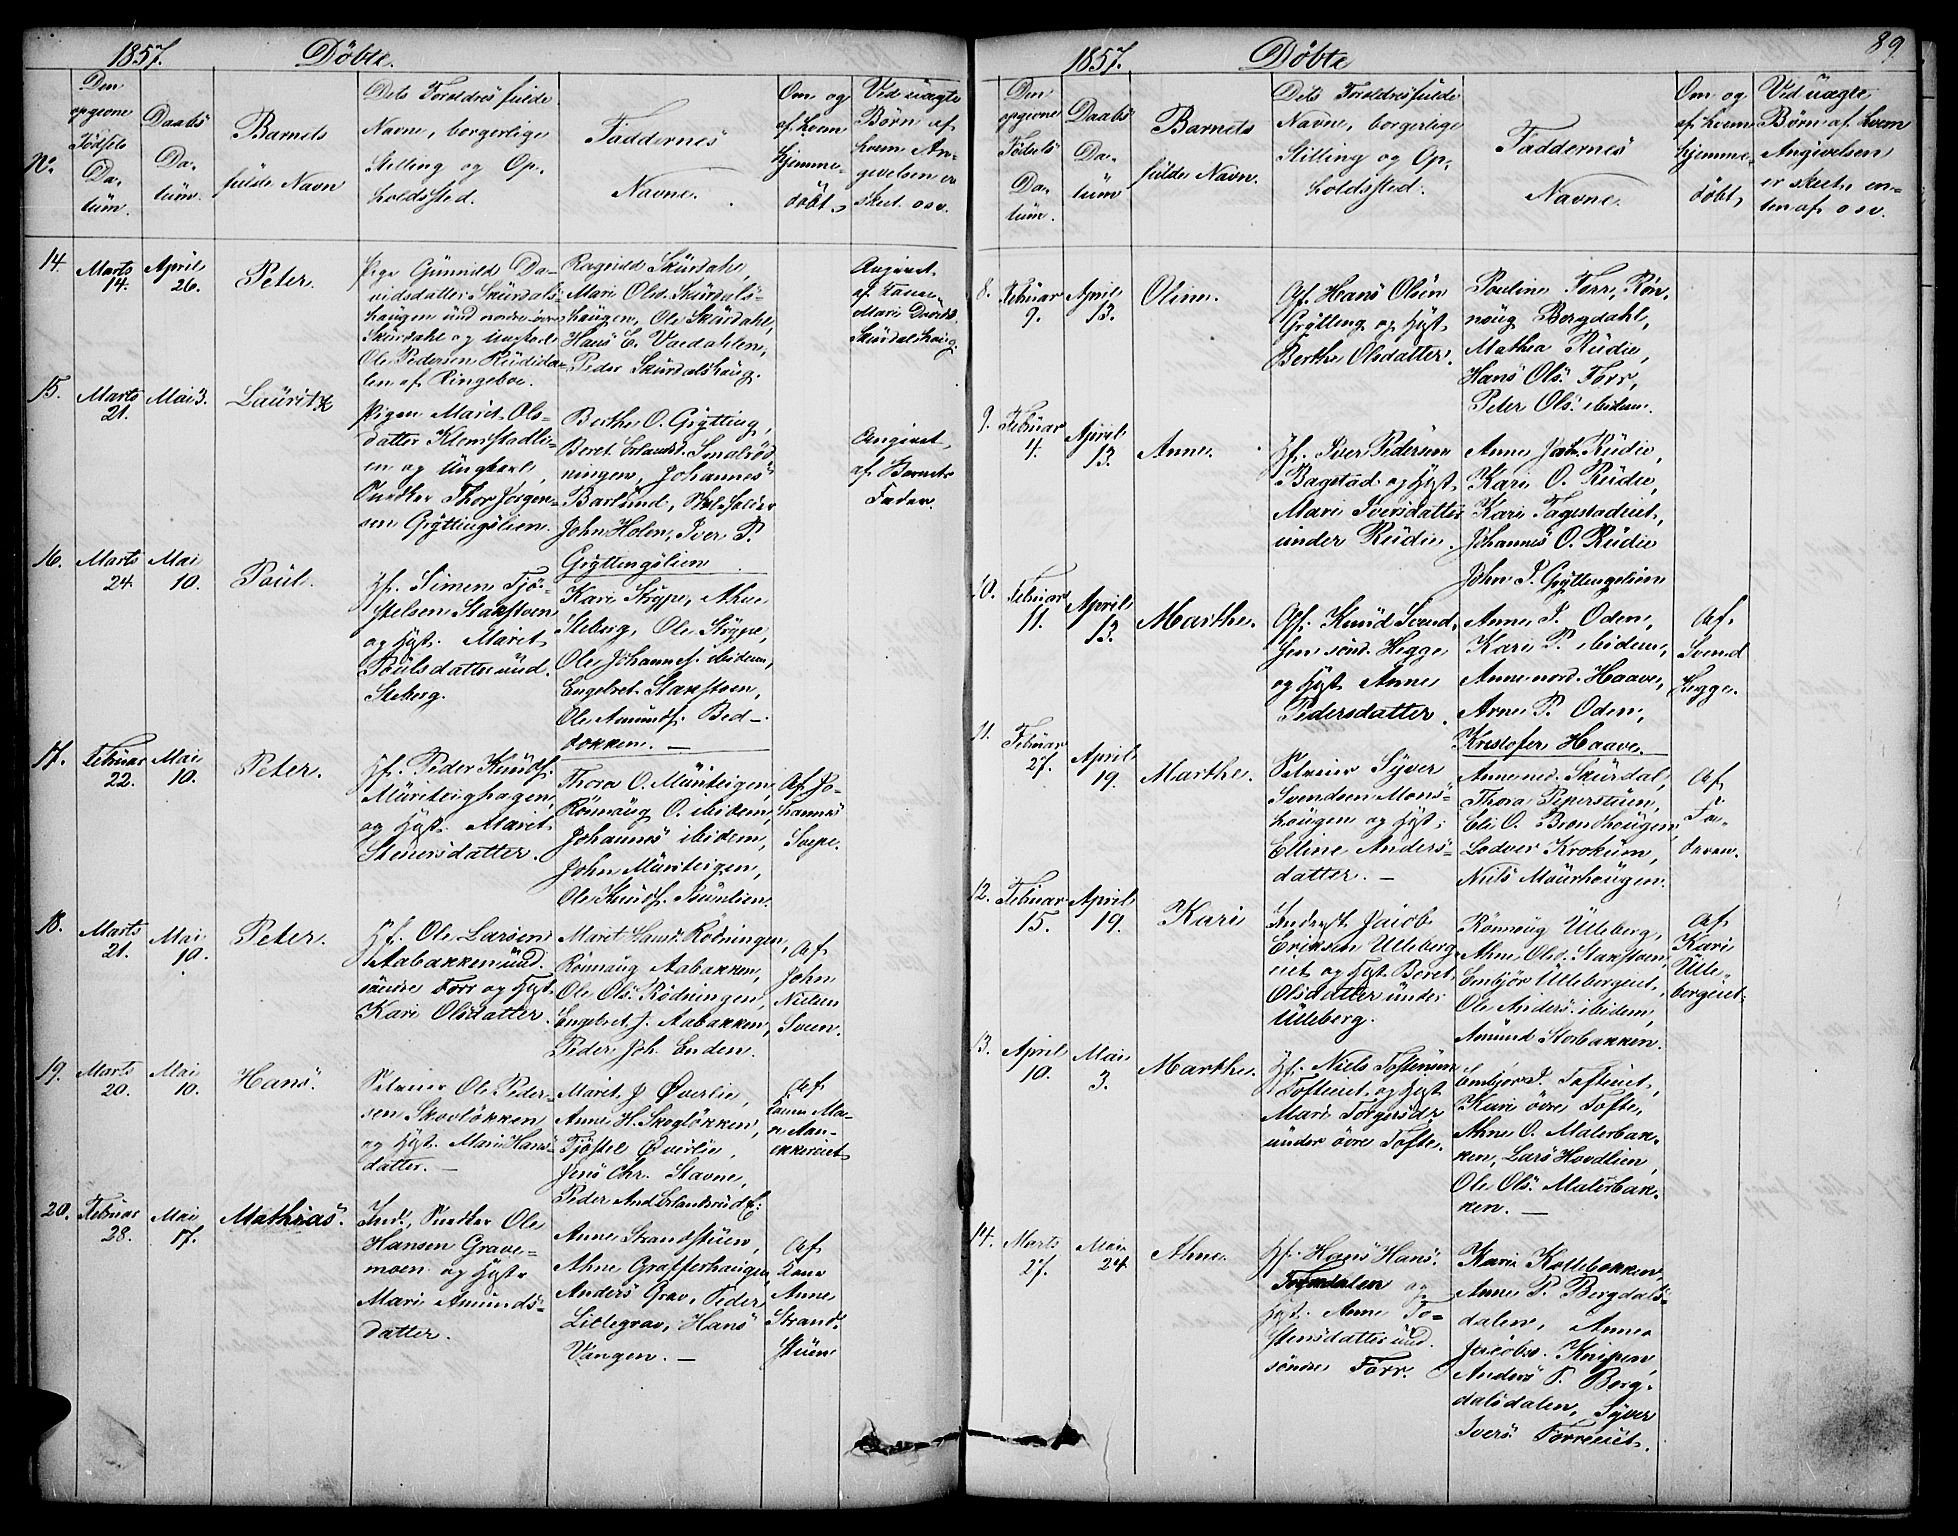 1857. Döbte.
No.
Den
opgivne
Födsels
Da-
tüm.
Daabs
Da-
tüm.
Barnets
fulde Navn
Dets Forældres fulde
Navne, borgerlige
Stilling og Op-
holdssted.
Faddernes
Navne.
Om og
af hvem
hjemme-
döbt,
Ved uægte
Børn af
hvem An-
givelsen er
skeet osv.
14.
Marts
14.
April
26.
Peter.
Pige Günnild Da-
vidsdatter Skürdals-
haugen und nordre övre
Skürdahl og Ungkarl
Ole Pedersen Rüdida-
len af Ringeboe.
Ragnild Skürdahl,
Mari Olsd. Skürdals-
haugen, Ole Skürdahl,
Hans E. Vaedahlen,
Peder Skürdalshaug.
Angivet
af Konen
Mari Davids.
Skürdalshaug.
15.
Marts
21.
Mai 3.
Lauritz
Pigen Marit Ols-
datter Klomstadli-
en og Ungkarl,
Snedker Thor Jörgen-
sen Gryttingslien.
Berthe O. Grytting,
Beret Erlandsd. Smalröd
ningen, Johannes
Barlünd,
John Holen, Iver P.
Gryttingslien
Angivet
af Barnets
Fader.
16.
Marts
24.
Mai
10.
Poul.
Hf. Simen Tjö-
stelsen Stakstuen
og Hust. Marit
Poulsdatter und.
Steberg.
Kari Strype, Ahne
Steberg, Ole Strype,
Ole Johannes. ibidem,
Engebret Stakstuen,
Ole Amunds. Bed-
dokken. —
17.
Februar
22.
Mai
10.
Peter.
Hf. Peder Knuds.
Müriteighagen,
og Hust. Marit
Stenersdatter.
Thora O. Müriteigen,
Rönnaug O. ibidem,
Johannes ibidem,
John Müriteigen,
Ole Knuds. Bunlien.
Af Jo-
hannes
Svepe.
18.
Marts
21.
Mai
10.
Peter.
Hf. Ole Larsen
Aabakken und.
söndre Forr og Hust.
Kari Olsdatter.
Marit Hansd. Rödningen,
Rönnaug Aabakken,
Ole Ols. Rödningen,
Engebret J. Aabakken,
Peder Joh. Enden.
Af
John
Nielsen
Sveen.
19.
Marts
20.
Mai
10.
Hans.
Selveier Ole Peder-
sen Skovlökken
og Hust. Mari Hans-
datter. —
Marit J. Øverlie,
Anne H. Skoglökken,
Tjöstel Øverlie,
Jens Chr. Stavne,
Peder And. Erlandsrud E.
Af
Kone Ma-
ri Aan-
ekkereiet
20.
Februar
28.
Mai
17.
Mathias.
Ind., Snedker Ole
Hansen Grave-
moen og Hust.
Mari Amunds-
datter.
Anne Strandstüen,
Ahne Grafferhaugen,
Anders Grav, Peder
Lillegrav, Hans
Vangen. —
Af
Kone
Anne
Strand-
stüen
1857. Döbte
89.
Den
opgivne
Födsels
Da-
tüm.
Daabs
Da-
tüm
Barnets
fulde Navn.
Dets Forældres fulde
Navne, borgerlige
Stilling og Op-
holdssted.
Faddernes
Navne.
Om og
af hvem
hjemme-
döbt,
Ved uægte
Børn af hvem
Angivelsen
er skeet, en-
ten af osv.
8.
Februar
9.
April
13.
Oline.
Gf. Hans Olsen
Grytting og Hust.
Berthe Olsdatter.
Pouline Forr, Rön-
naug Bergdahl,
Mathea Rüdie,
Hans Ols. Forr,
Peter Ols. ibidem.
9.
Februar
4.
April
13.
Anne.
Hf. Iver Pedersen
Bagstad og Hust.
Mari Iversdatter
under Rüdie.
Anne Joh. Rüdie,
Kari O. Rüdie,
Kari Fagestadeiet,
Johannes O. Rüdie
John P. Gryttingslien
10.
Februar
11.
April
13.
Marthe.
Gf. Knud Svend-
sen sönd. Hegge
og Hust. Anne
Pedersdatter.
Anne P. Oden,
Kari P. ibidem,
Anne nord. Haave,
Arne P. Oden,
Kristofer Haave. —
Af
Svend
Hegge.
11.
Februar
27.
April
19.
Marthe.
Selveier Syver
Svendsen Mons-
hougen og Hust.
Elline Anders-
datter. —
Anne ned. Skürdal,
Thora Piperstüen,
Eli O. Brandhougen,
Lodver Krokum,
Niels Maurhougen.
Af
Fa-
deren.
12.
Februar
15.
April
19.
Kari
Inderst Jacob
Eriksen Ulleberg
eiet og Hust. Beret
Olsdatter under
Ulleberg.
Rönnoug Ulleberg,
Ahne Olsd. Stakstuen,
Embjör Ullebergeiet,
Ole Anders. ibidem,
Amund Storbakken.
Af
Kari
Ulle-
bergeiet.
13.
April
10.
Mai
3.
Marthe.
Hf. Niels Tostensen
Tofteeiet, og Hust.
Mari Torgersdr.
under övre Tofte.
Embjör J. Tofteeiet,
Kari övre Tofte,
Ahne O. Malerbak-
ken, Lars Hovdlien,
Ole Ols. Malerbak-
ken. —
14.
Marts
27.
Mai
24.
Ahne.
Hf. Hans Hans.
og
Hust. Anne To-
stensdatter und.
söndre Forr.
Karie Kollebakken,
Anne P. Bergdals-
dalen, Anne
Jacobs. Knipen,
Anders P. Berg-
dalsdalen, Syver
Ivers. Forreeiet.